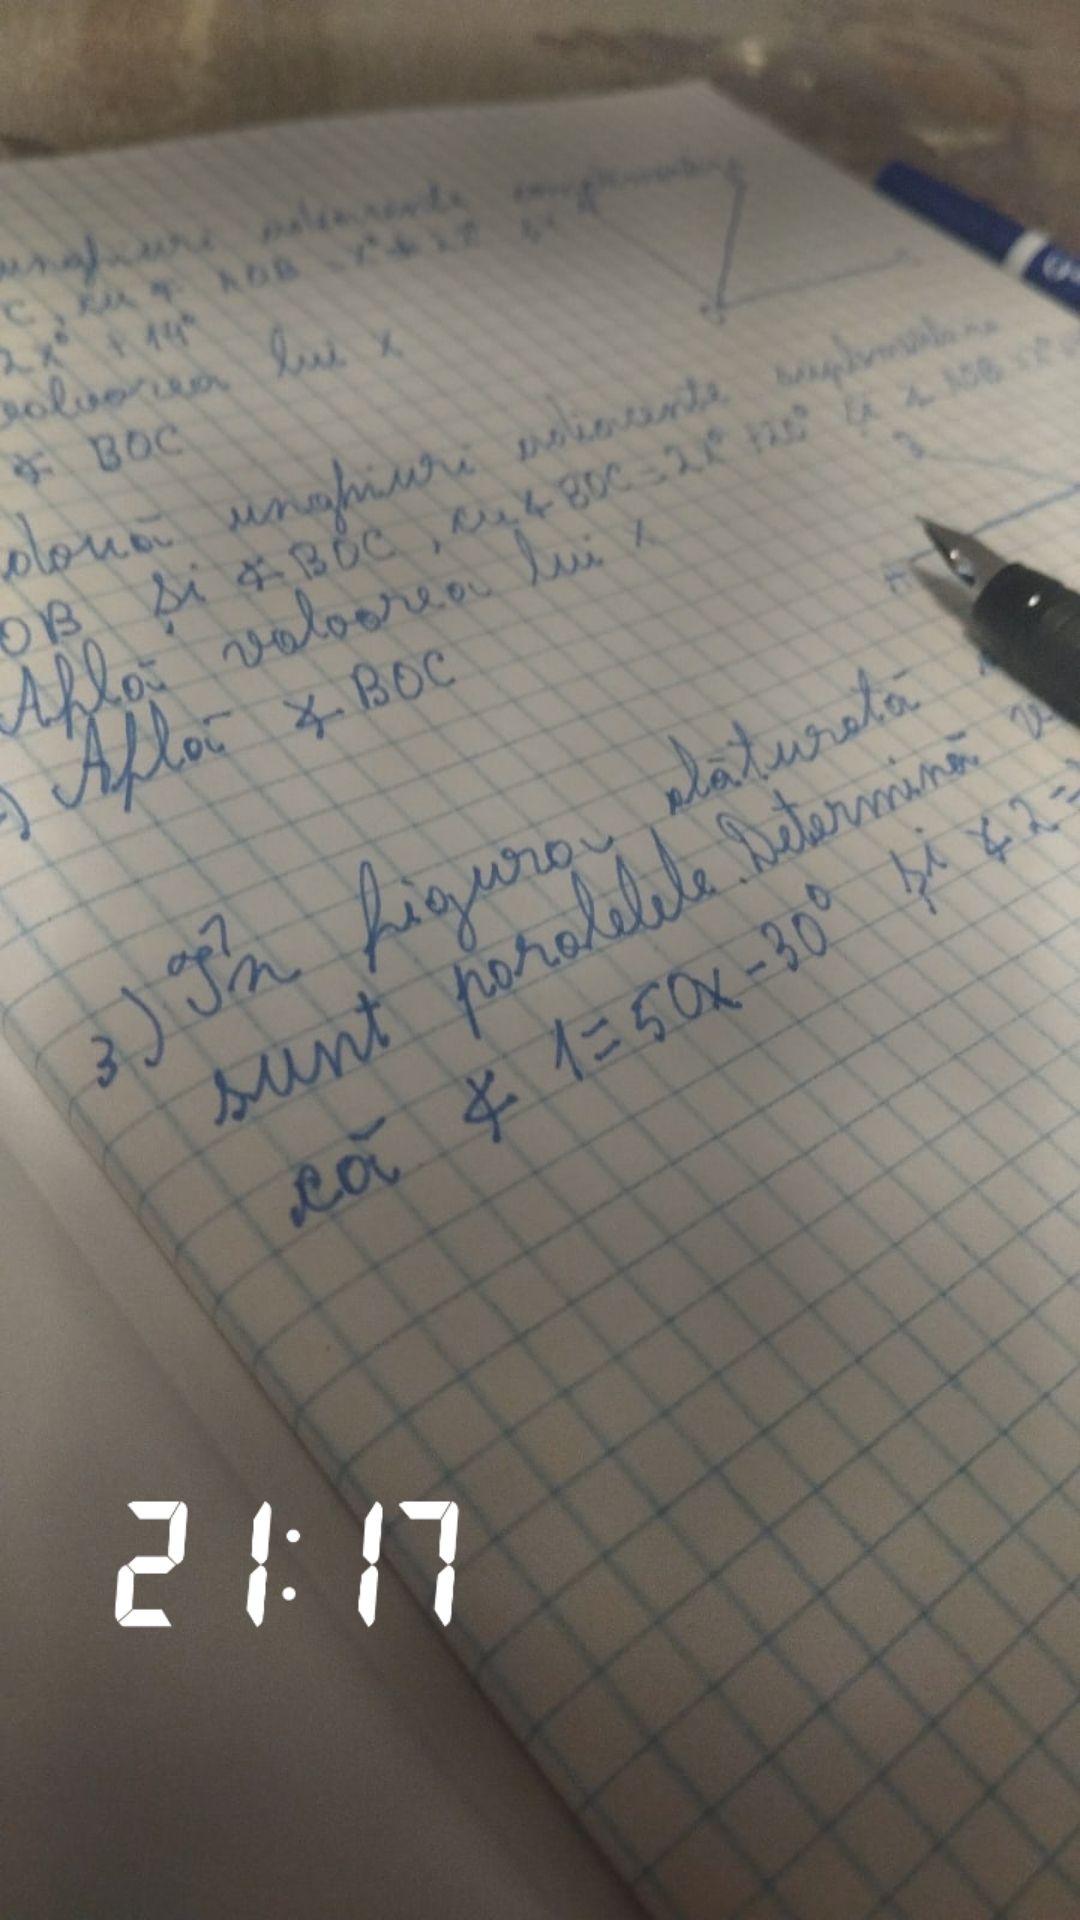 unghiuri adiacente complementare
C, cu ∢ AOB = x° + 2x° și
2x° + 14°
valoarea lui x
∢ BOC
două unghiuri adiacente suplimentare
OB și ∢ BOC, cu ∢ BOC = 2x° + 20° și ∢ AOB = x°
Află valoarea lui x
Află ∢ BOC
3) În figura alăturată
sunt paralele. Determină
că ∢ 1 = 50x - 30° și ∢ 2 =
21:17